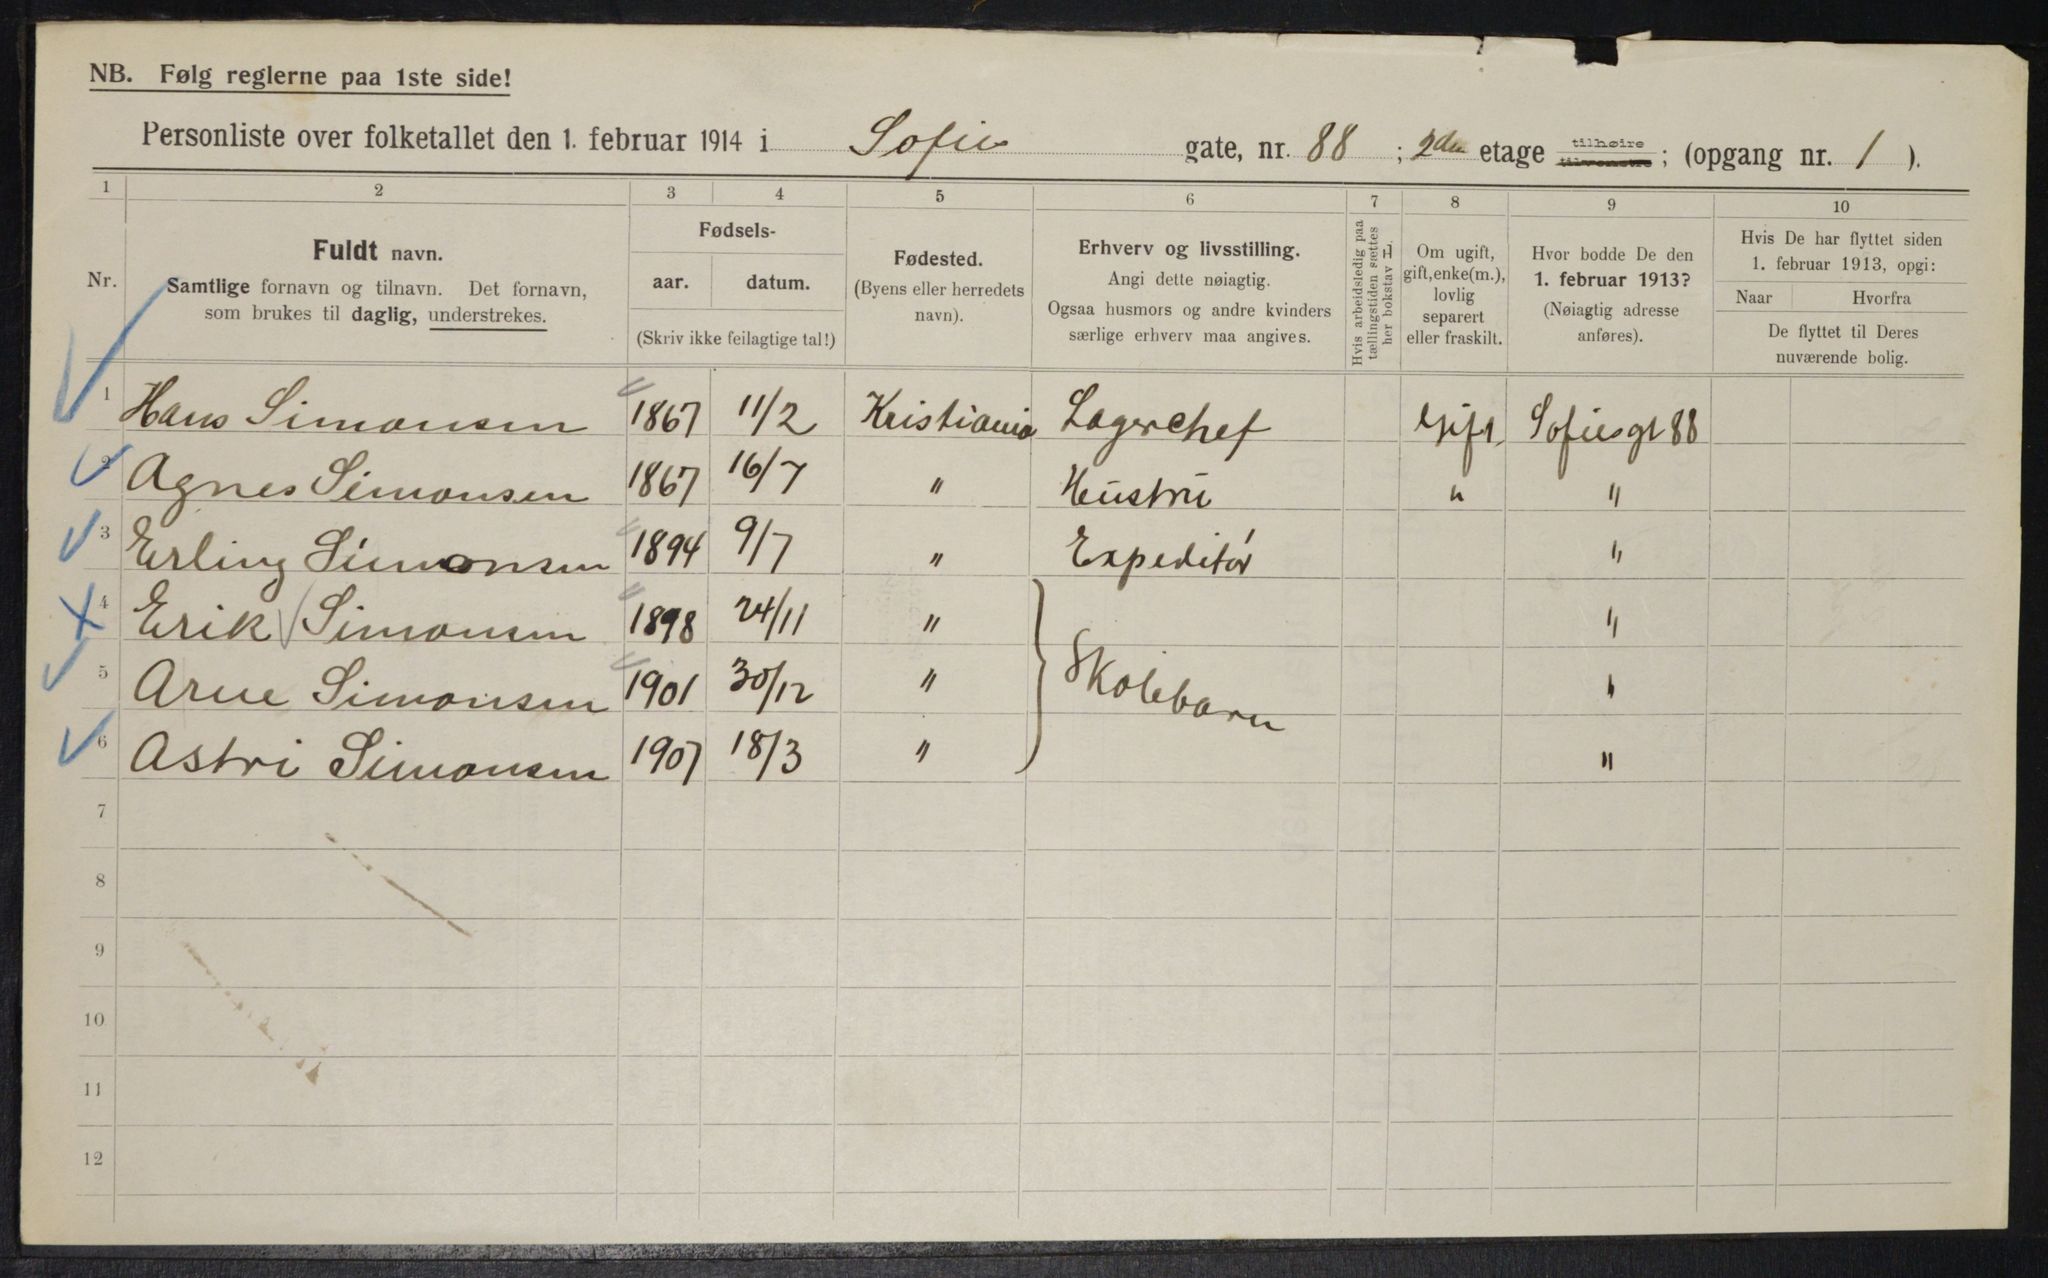 NB. Følg reglerne paa 1ste side!
Personliste over folketallet den 1. februar 1914 i Sofies gate, nr. 88 ; 2den etage tilhøire tilvenstre ; (opgang nr. 1 ).
1 2 3 4 5 6 7 8 9 10
Nr.
Fuldt navn.
Samtlige fornavn og tilnavn. Det fornavn,
som brukes til daglig, understrekes.
Fødsels-
aar. datum.
(Skriv ikke feilagtige tal!)
Fødested.
(Byens eller herredets
navn).
Erhverv og livsstilling.
Angi dette nøiagtig.
Ogsaa husmors og andre kvinders
særlige erhverv maa angives.
Hvis arbeidsledig paa
tællingstiden sættes
her bokstav L
Om ugift,
gift, enke(m.),
lovlig
separert
eller fraskilt.
Hvor bodde De den
1. februar 1913?
(Nøiagtig adresse
anføres).
Hvis De har flyttet siden
1. februar 1913, opgi:
Naar Hvorfra
De flyttet til Deres
nuværende bolig.
1 Hans Simonsen 1867 11/2 Kristiania Lagerchef Gift Sofiesgt 88
2 Agnes Simonsen 1867 16/7 " Hustru " "
3 Erling Simonsen 1894 9/7 " Expeditør "
4 Erik Simonsen 1898 24/11 " "
5 Arne Simonsen 1901 30/12 " Skolebarn "
6 Astri Simonsen 1907 18/3 " "
7
8
9
10
11
12